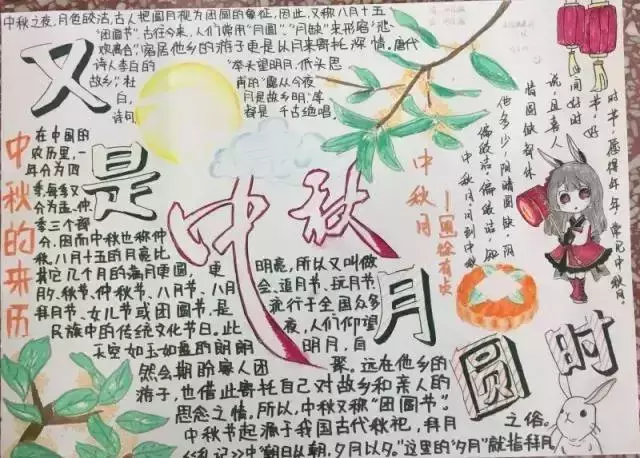 中秋之夜，月色皎洁，古人把圆月视为团圆的象征，因此，又称八月十五
“团圆节”。古往今来，人们常用“月圆”、“月缺”来形容“悲
欢离合”，客居他乡的游子更是以月来寄托深情。唐代
诗人李白的“举头望明月，低头思
故乡”，杜甫的“露从今夜
白，月是故乡明”等
诗句都是千古绝唱。
又是中秋月圆时
中秋的来历
在中国的
农历里，一
年分为四
季，每季又
分为孟、仲、
季三个部
分，因而中秋也称仲
秋。八月十五的月亮比
其它几个月的满月更圆，更明亮，所以又叫做
月夕、秋节、仲秋节、八月节、八月会、追月节、玩月节、
拜月节、女儿节或团圆节，是流行于全国众多
民族中的传统文化节日。此夜，人们仰望
天空如玉如盘的朗朗明月，自
然会期盼家人团聚。远在他乡的
游子，也借此寄托自己对故乡和亲人的
思念之情。所以，中秋又称“团圆节”。
中秋节起源于我国古代秋祀，拜月之俗。
《礼记》中“朝日从朝，夕月以夕。”这里的“夕月”就指拜月
中秋月
中秋月。月到中秋
偏皎洁。偏皎洁，知
他多少，阴晴圆缺。阴
晴圆缺都休
说，且喜人
间好时
节。好
时节，愿得年年，常见中秋月。